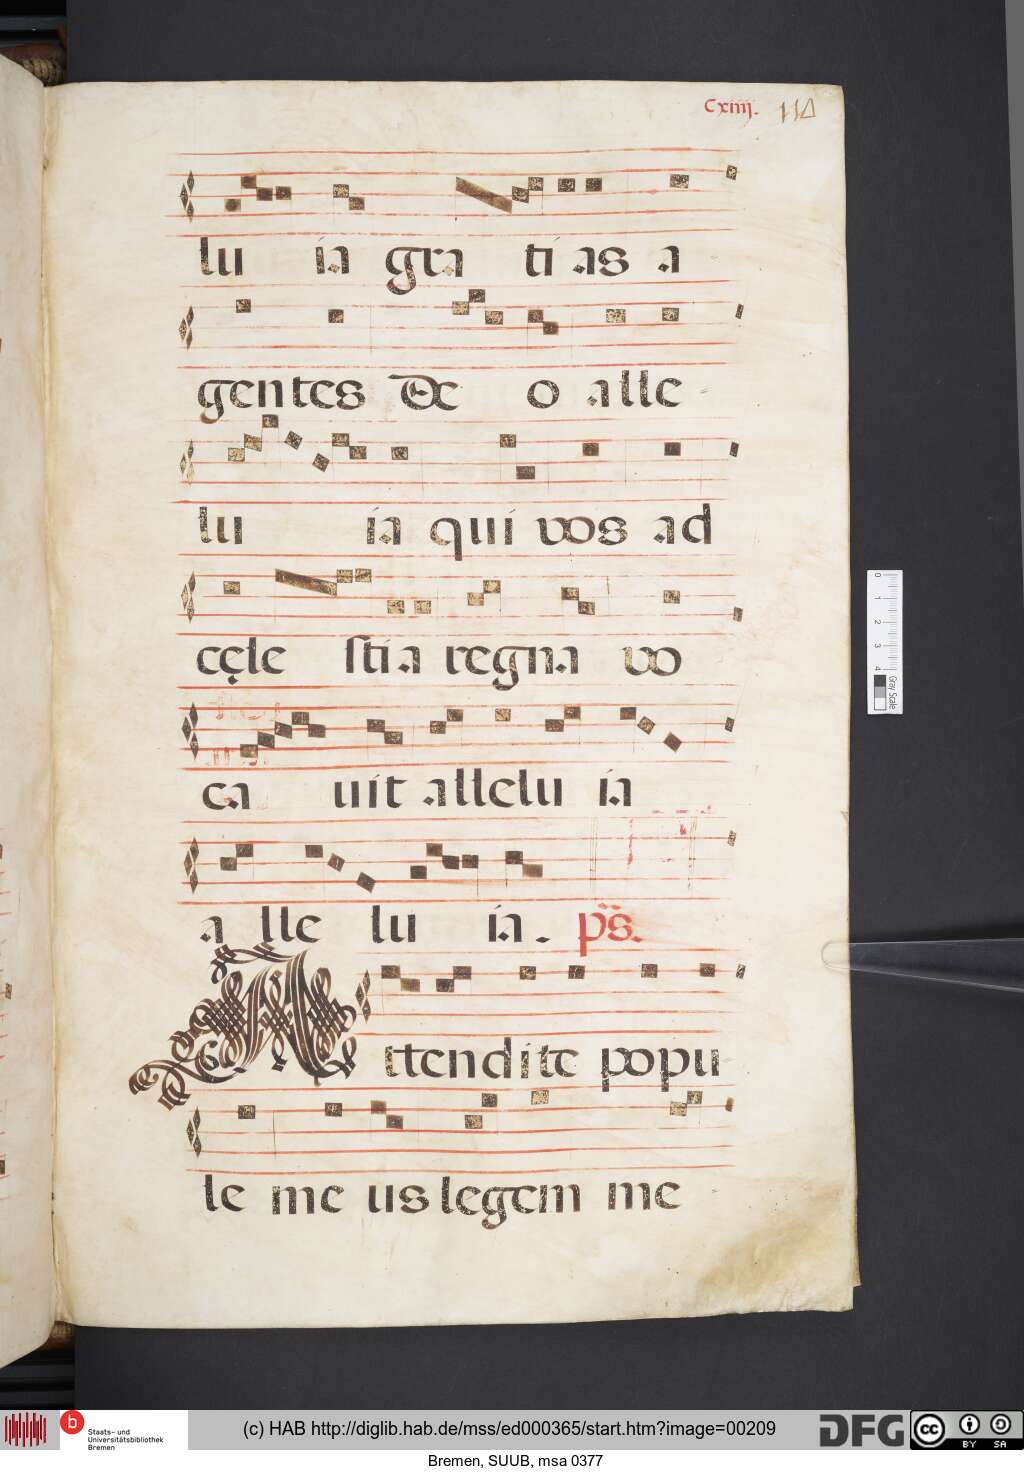 Cxiiij. 114
lu ia gra ti as a
gentes de o alle
lu ia qui vos ad
cęle stia regna vo
ca uit allelu ia
a lle lu ia. p̄s.
Attendite popu
le me us legem me
0 1 2 3 4 Gray Scale
b Staats- und
Universitätsbibliothek
Bremen
(c) HAB http://diglib.hab.de/mss/ed000365/start.htm?image=00209
DFG
cc BY SA
Bremen, SUUB, msa 0377